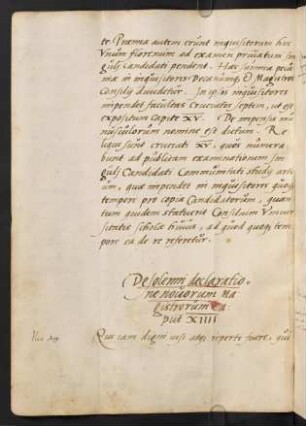 te Præmia autem erunt inquisitorum hæc
Vnum florenum ad examen priuatum sin
guli Candidati pendent. Hæc summa pecu
niæ in inquisitores Decanumq; & Magistros
Consilij diuidetur. In ipsos inquisitores
impendet facultas cruciatos septem, ut est
expositum capite XV. De impensa mu
nusculorum nomine est dictum. Re
liqui sunt cruciati XV. quos numera
bunt ad publicam examinationem sin
guli Candidati Communitati studij arti
um, quæ impendet in inquisitores quoq;
tempori pro copia Candidatorum, quan
tum quidem statuerit Consilium Vniuer
sitatis scholæ, ad quod quoq; tem
pore ea de re referetur.
De solenni declaratio
ne nouorum Ma
gistrorum Ca
put XIIII
Qui iam digni uisi atq; reperti fuere, qui